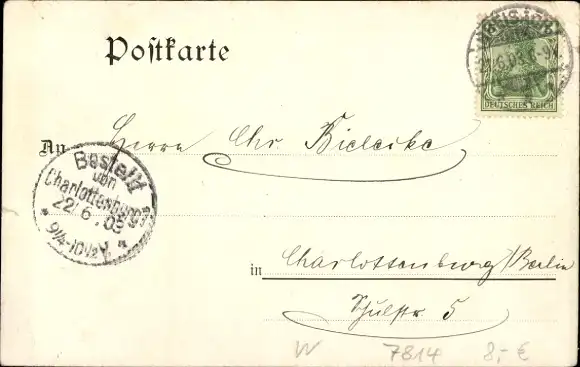 Postkarte
DEUTSCHES REICH
An Herrn Chr. Bielecke
Bestellt
von
Charlottenburg
22/6.03
* 9¼-10½V. *
in Charlottenburg/Berlin
Schulstr 5
W 7814 8,- €